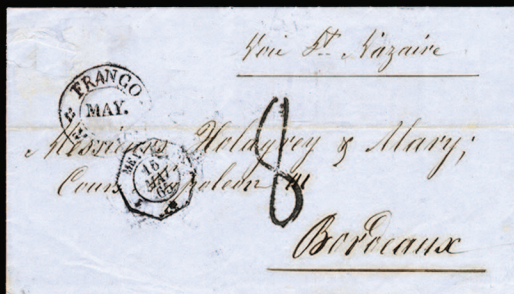 Voie St Nazaire
FRANCO
MAY.
15
MAI
8
Messieurs Holdgrey & Mary;
Cours Napoleon
Bordeaux